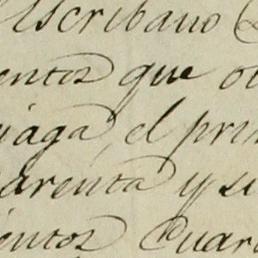 escribano
entos que o
iaga, el pri
arenta y si
ientos Cuar